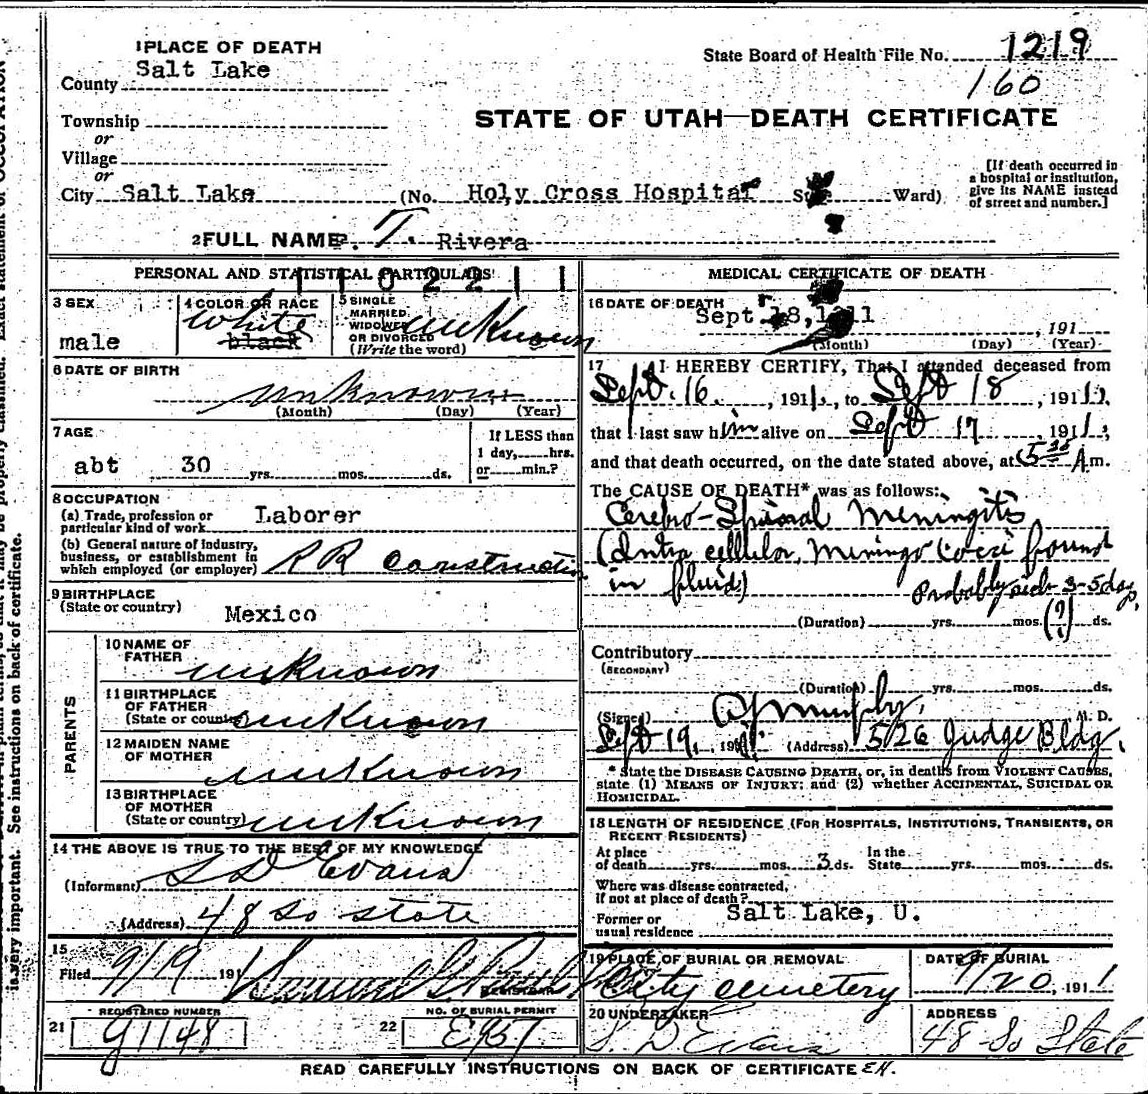 1 PLACE OF DEATH
County Salt Lake
State Board of Health File No. 1219
160
STATE OF UTAH—DEATH CERTIFICATE
Township
or
Village
or
City Salt Lake (No. Holy Cross Hospital Ward)
[If death occurred in
a hospital or institution,
give its NAME instead
of street and number.]
2 FULL NAME T. Rivera
PERSONAL AND STATISTICAL PARTICULARS
3 SEX
male
4 COLOR OR RACE
White
black
5 SINGLE
MARRIED,
WIDOWED
OR DIVORCED
(Write the word)
unknown
6 DATE OF BIRTH
unknown
(Month) (Day) (Year)
7 AGE
abt 30 yrs. mos. ds.
If LESS than
1 day, hrs.
or min.?
8 OCCUPATION
(a) Trade, profession or
particular kind of work Laborer
(b) General nature of industry,
business, or establishment in
which employed (or employer) RR Construction
9 BIRTHPLACE
(State or country)
Mexico
PARENTS
10 NAME OF
FATHER
unknown
11 BIRTHPLACE
OF FATHER
(State or country) unknown
12 MAIDEN NAME
OF MOTHER
unknown
13 BIRTHPLACE
OF MOTHER
(State or country) unknown
14 THE ABOVE IS TRUE TO THE BEST OF MY KNOWLEDGE
(Informant) S D Evans
(Address) 48 So State
15
Filed 9/19 191
REGISTRAR
21 REGISTERED NUMBER
G1148
22 NO. OF BURIAL PERMIT
E957
MEDICAL CERTIFICATE OF DEATH
16 DATE OF DEATH
Sept 18, 1911
, 191
(Month) (Day) (Year)
17 I HEREBY CERTIFY, That I attended deceased from
Sept. 16. , 1911, to Sept 18 , 1911,
that I last saw him alive on Sept 17 1911,
and that death occurred, on the date stated above, at 5 30 A.m.
The CAUSE OF DEATH* was as follows:
Cerebro-Spinal Meningitis
(Intra cellular, Meningo Cocci found
in fluid)
Probably sick 3-5 days
(Duration) yrs. mos. (?) ds.
Contributory
(SECONDARY)
(Duration) yrs. mos. ds.
(Signed) Murphy, M. D.
Sept 19, 191 (Address) 526 Judge Bldg.
* State the DISEASE CAUSING DEATH, or, in deaths from VIOLENT CAUSES,
state (1) MEANS OF INJURY; and (2) whether ACCIDENTAL, SUICIDAL OR
HOMICIDAL.
18 LENGTH OF RESIDENCE (FOR HOSPITALS, INSTITUTIONS, TRANSIENTS, OR
RECENT RESIDENTS)
At place
of death yrs. mos. 3 ds.
In the
State yrs. mos. ds.
Where was disease contracted,
if not at place of death?
Former or
usual residence Salt Lake, U.
19 PLACE OF BURIAL OR REMOVAL
City cemetery
DATE OF BURIAL
9/20, 1911
20 UNDERTAKER
S. D Evans
ADDRESS
48 So State
READ CAREFULLY INSTRUCTIONS ON BACK OF CERTIFICATE EH.
is very important. See instructions on back of certificate.